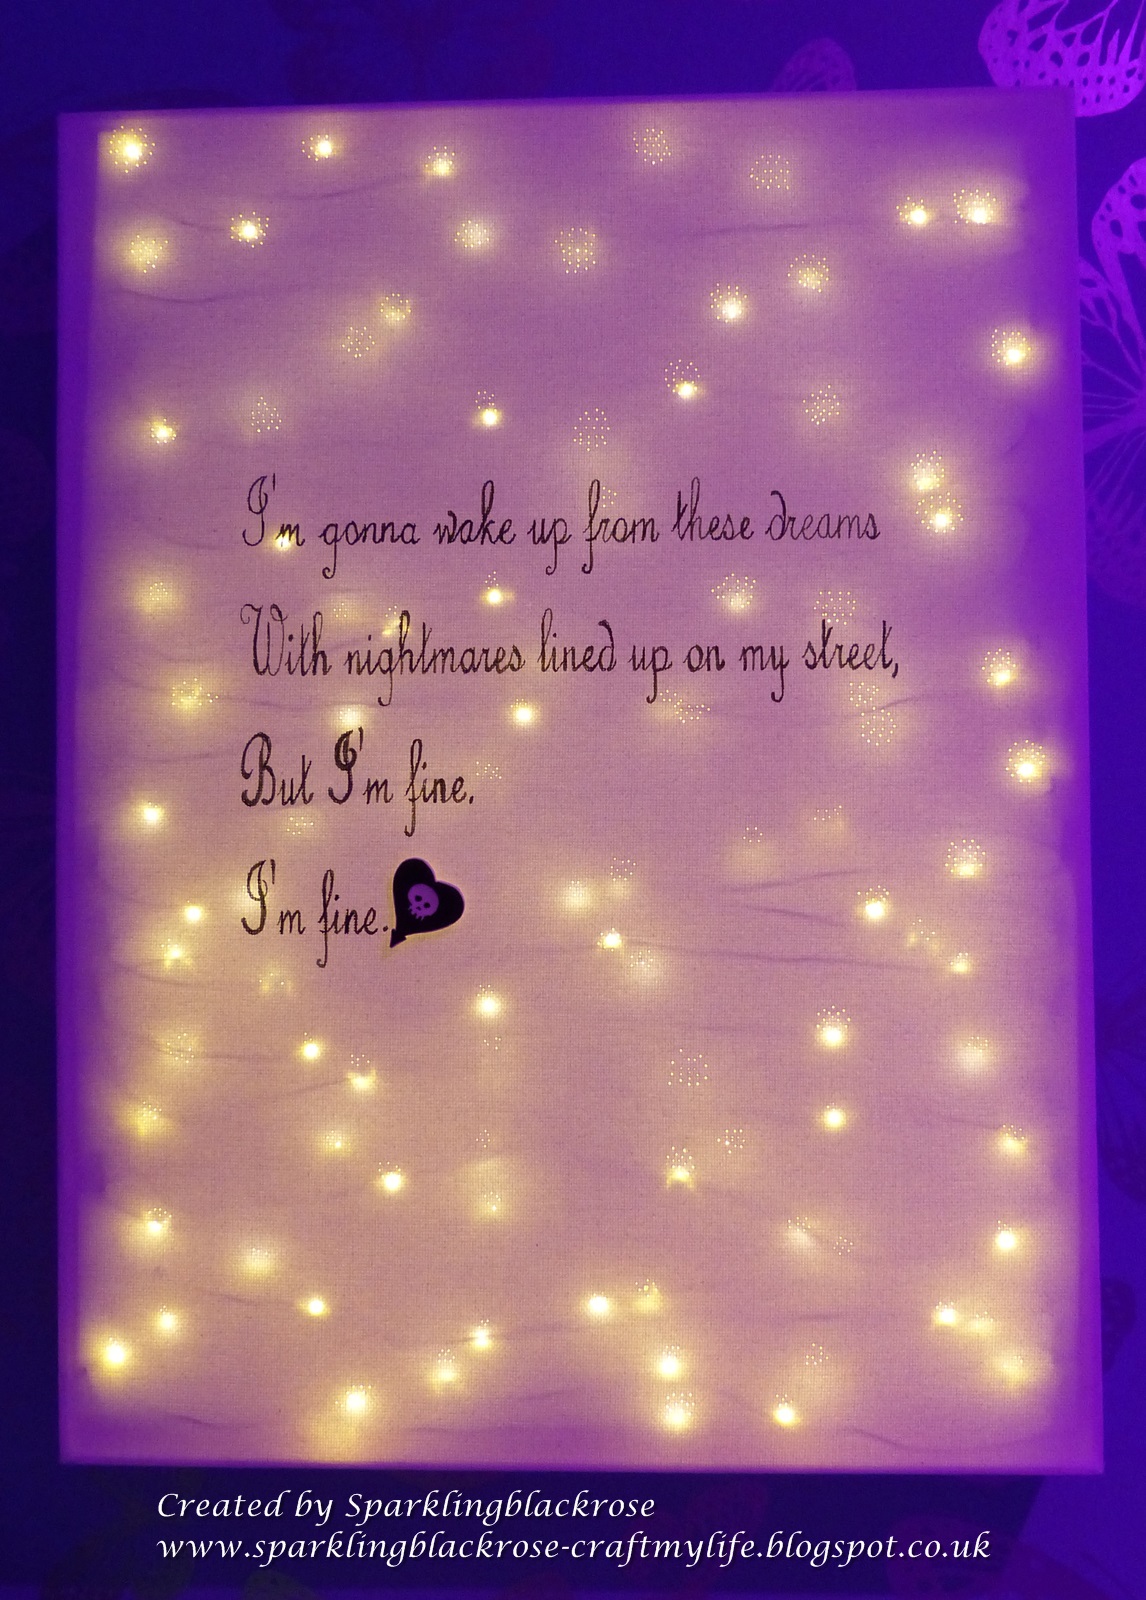 I'm gonna wake up from these dreams
With nightmares lined up on my street,
But I'm fine.
I'm fine.
Created by Sparklingblackrose
www.sparklingblackrose-craftmylife.blogspot.co.uk